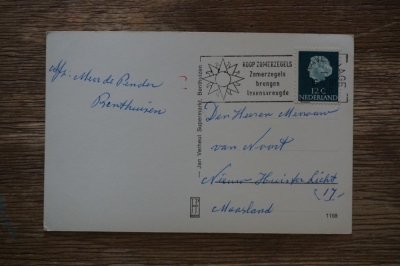 afz. Mevr de Pender
Benthuizen
KOOP ZOMERZEGELS
Zomerzegels
brengen
levensvreugde
12 C
NEDERLAND
HAGE
Jan Vermeul Supermarkt, Benthuizen
Den Heer en Mevrouw
van Noort
Nieuw
17
Maasland
1168